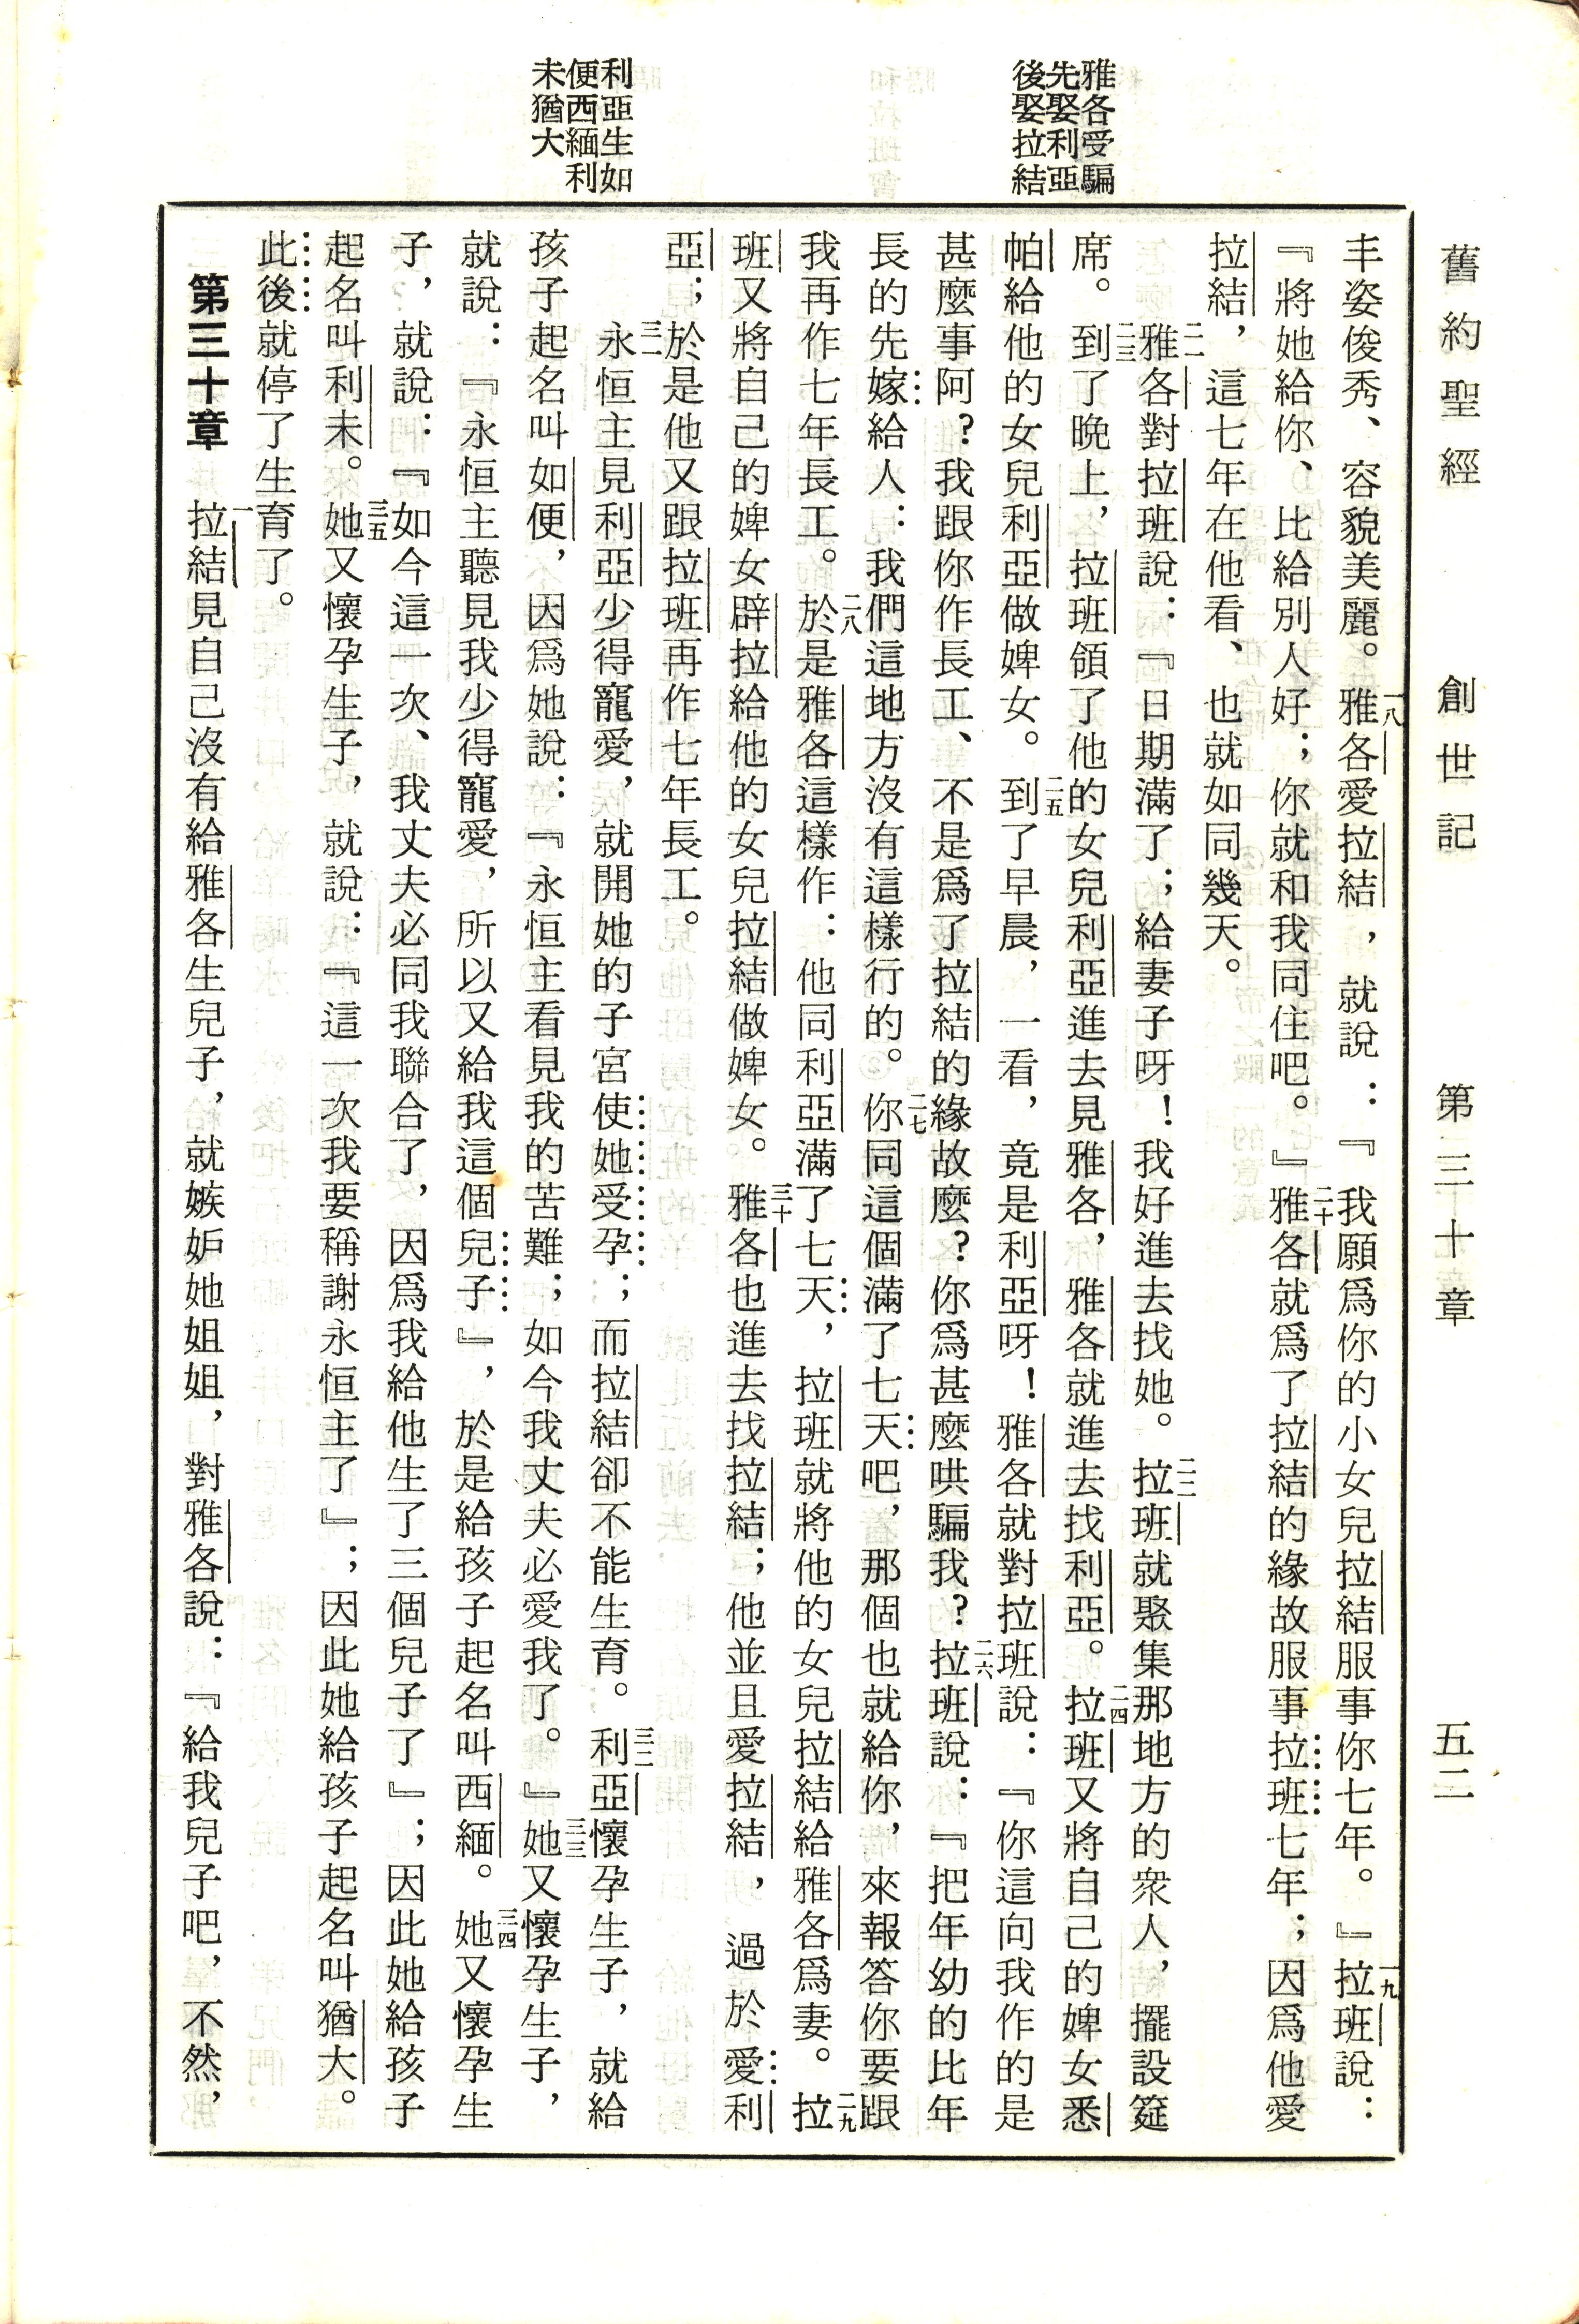 舊約聖經 創世記 第二十九章 五二
雅各受騙
先娶利亞
後娶拉結
利亞生如
便西緬利
未猶大
丰姿俊秀、容貌美麗。一八雅各愛拉結，就說：『我願爲你的小女兒拉結服事你七年。』一九拉班說：
『將她給你、比給別人好；你就和我同住吧。』二十雅各就爲了拉結的緣故服事拉班七年；因爲他愛
拉結，這七年在他看、也就如同幾天。
二一雅各對拉班說：『日期滿了；給妻子呀！我好進去找她。二二拉班就聚集那地方的衆人，擺設筵
席。二三到了晚上，拉班領了他的女兒利亞進去見雅各，雅各就進去找利亞。二四拉班又將自己的婢女悉
帕給他的女兒利亞做婢女。二五到了早晨，一看，竟是利亞呀！雅各就對拉班說：『你這向我作的是
甚麼事阿？我跟你作長工、不是爲了拉結的緣故麼？你爲甚麼哄騙我？二六拉班說：『把年幼的比年
長的先嫁給人：我們這地方沒有這樣行的。二七你同這個滿了七天吧，那個也就給你，來報答你要跟
我再作七年長工。二八於是雅各這樣作：他同利亞滿了七天，拉班就將他的女兒拉結給雅各爲妻。二九拉
班又將自己的婢女辟拉給他的女兒拉結做婢女。三十雅各也進去找拉結；他並且愛拉結，過於愛利
亞；於是他又跟拉班再作七年長工。
三一永恒主見利亞少得寵愛，就開她的子宮使她受孕；而拉結卻不能生育。三二利亞懷孕生子，就給
孩子起名叫如便，因爲她說：『永恒主看見我的苦難；如今我丈夫必愛我了。』三三她又懷孕生子，
就說：『永恒主聽見我少得寵愛，所以又給我這個兒子』，於是給孩子起名叫西緬。三四她又懷孕生
子，就說：『如今這一次、我丈夫必同我聯合了，因爲我給他生了三個兒子了』；因此她給孩子
起名叫利未。三五她又懷孕生子，就說：『這一次我要稱謝永恒主了』；因此她給孩子起名叫猶大。
此後就停了生育了。
第三十章 一拉結見自己沒有給雅各生兒子，就嫉妒她姐姐，對雅各說：『給我兒子吧，不然，